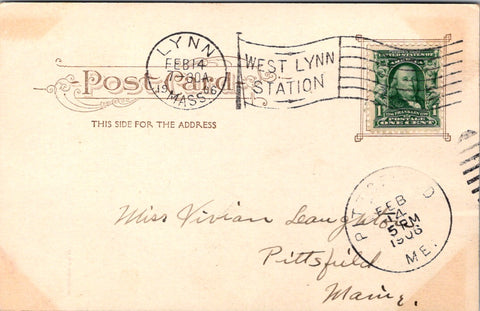 LYNN
FEB 14
7-30A
1906
MASS.
WEST LYNN
STATION
Post Card
THIS SIDE FOR THE ADDRESS
FRANKLIN
POSTAGE
ONE CENT
PITTSFIELD
FEB
14
5 PM
1906
ME.
Miss Vivian
Pittsfield
Maine.